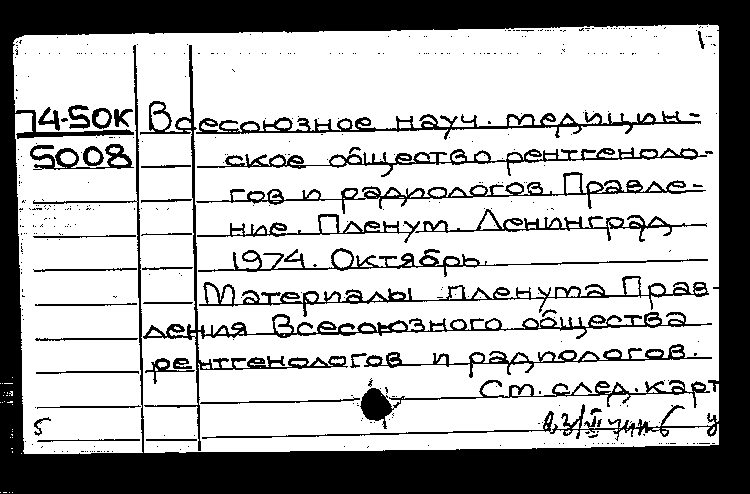 1
74-50К Всесоюзное науч. медицин-
5008 ское общество рентгеноло-
гов и радиологов. Правле-
ние. Пленум. Ленинград
1974. Октябрь.
Материалы пленума Прав-
ления Всесоюзного общества
рентгенологов и радиологов.
См. след. карт
5 у